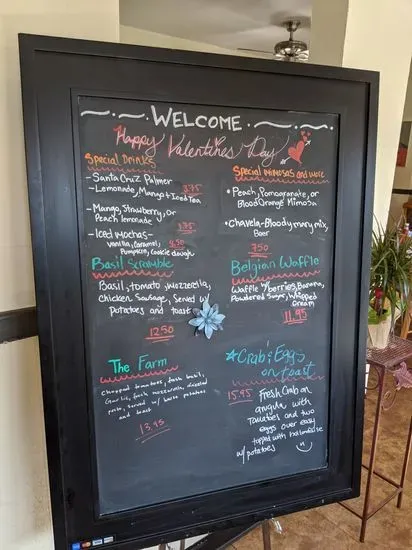 WELCOME
Happy Valentines Day
Special Drinks
- Santa Cruz Palmer
- Lemonade, Mango & Iced Tea
3.75
- Mango, Strawberry, or
Peach lemonade
3.75
- Iced Mochas -
Vanilla, Caramel,
Pumpkin, Cookie dough
4.50
Special mimosas and more
• Peach, Pomegranate, or
Blood Orange Mimosa
• Chavela - Bloody mary mix,
Beer
7.50
Basil Scramble
Basil, tomato, mozzerella,
Chicken Sausage, Served w/
Potatoes and toast
12.50
Belgian Waffle
Waffle w/ berries, Banana,
Powdered Sugar, Whipped
Cream
11.95
The Farm
Chopped tomatoes, fresh basil,
Garlic, fresh mozzarella,
eggs, served w/ house potatoes
and toast
13.95
Crab & Eggs
on toast
15.95
Fresh Crab on
arugula with
Tomatoes and two
eggs over easy
topped with hollandaise
w/ potatoes